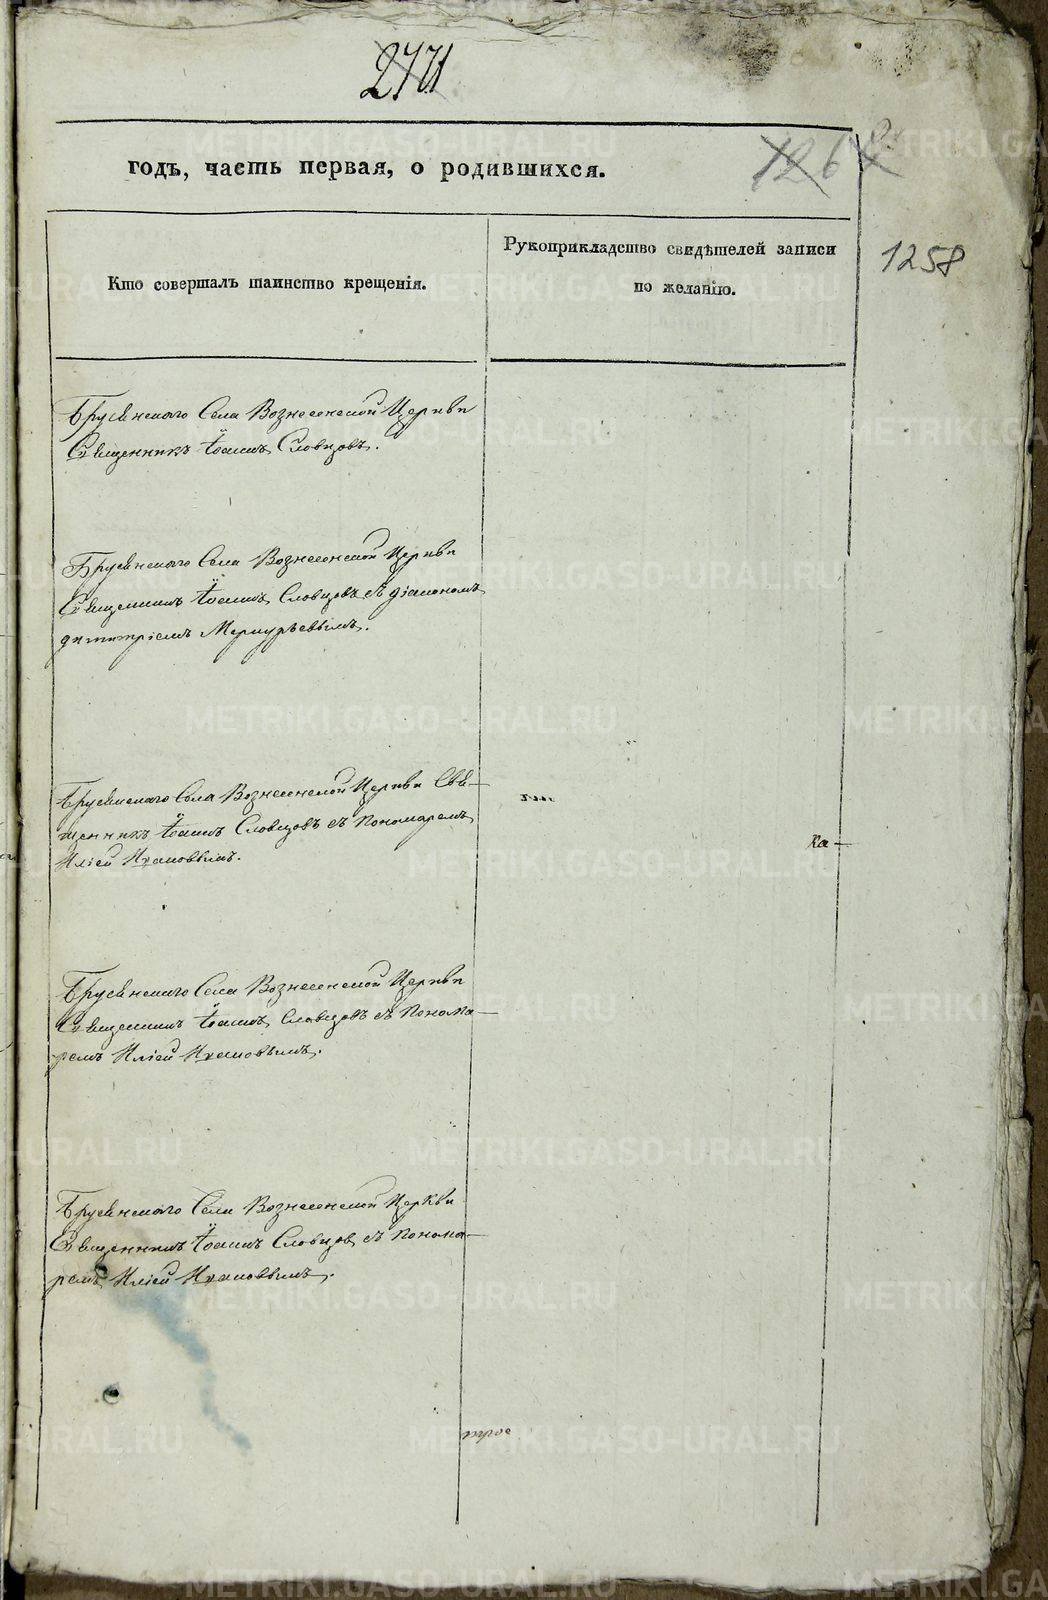 годъ, часть первая, о родившихся.
1258
Кто совершалъ таинство крещенія.
Рукоприкладство свидѣтелей записи
по желанію.
Брусянскаго Села Вознесенской Церкви
Священникъ Іоаннъ Словцовъ.
Брусянскаго Села Вознесенской Церкви
Священникъ Іоаннъ Словцовъ съ діакономъ
димитріемъ Меркурьевымъ.
Брусянскаго Села Вознесенской Церкви Свя-
щенникъ Іоаннъ Словцовъ съ Пономаремъ
Иліей
Ка-
Брусянскаго Села Вознесенской Церкви
Священникъ Іоаннъ Словцовъ съ Понома-
ремъ Иліей
Брусянскаго Села Вознесенской Церкви
Священникъ Іоаннъ Словцовъ съ Понома-
ремъ Иліей
METRIKI.GASO-URAL.RU